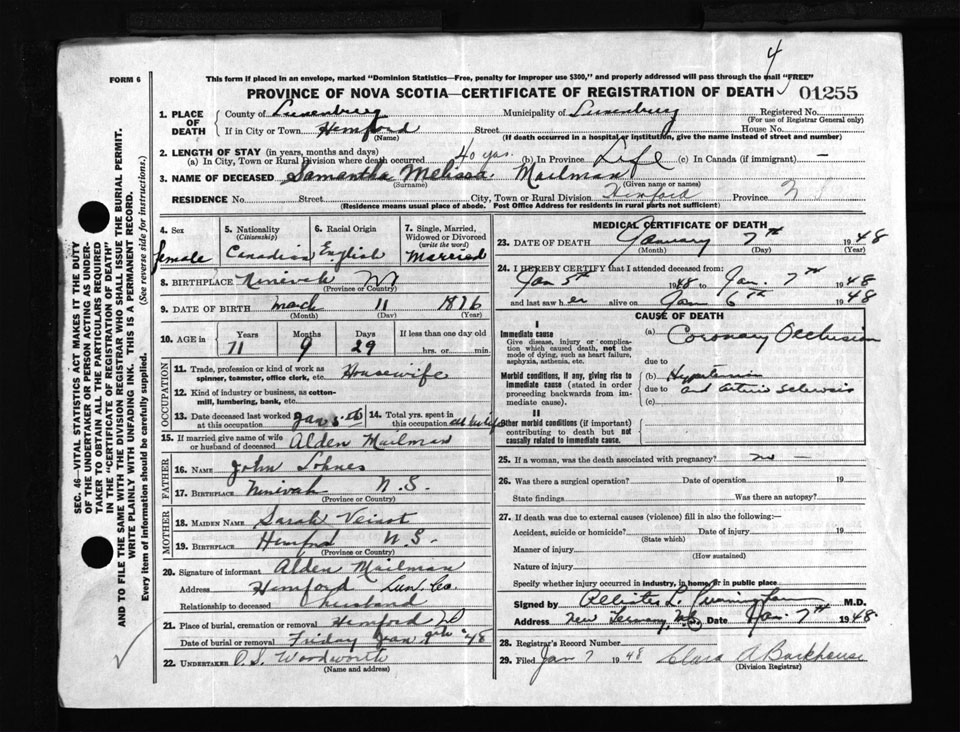 4
FORM 6
This form if placed in an envelope, marked "Dominion Statistics—Free, penalty for improper use $300," and properly addressed will pass through the mail "FREE"
PROVINCE OF NOVA SCOTIA—CERTIFICATE OF REGISTRATION OF DEATH
01255
1. PLACE OF DEATH
County of Lunenburg Municipality of Lunenburg Registered No.
(For use of Registrar General only)
If in City or Town Hemford Street House No.
(Name) (If death occurred in a hospital or institution, give the name instead of street and number)
2. LENGTH OF STAY (in years, months and days)
(a) In City, Town or Rural Division where death occurred 40 yrs. (b) In Province Life (c) In Canada (if immigrant) —
3. NAME OF DECEASED Samantha Melissa Mailman
(Surname) (Given name or names)
RESIDENCE No. Street City, Town or Rural Division Hemford Province N S
(Residence means usual place of abode. Post Office Address for residents in rural parts not sufficient)
4. Sex
female
5. Nationality
(Citizenship)
Canadian
6. Racial Origin
English
7. Single, Married, Widowed or Divorced
(write the word)
Married
8. BIRTHPLACE Ninevah
(Province or Country)
9. DATE OF BIRTH march 11 1876
(Month) (Day) (Year)
10. AGE in
Years Months Days If less than one day
71 9 29 hrs. or min.
OCCUPATION
11. Trade, profession or kind of work as spinner, teamster, office clerk, etc. Housewife
12. Kind of industry or business, as cotton-mill, lumbering, bank, etc.
13. Date deceased last worked at this occupation Jan 5th
14. Total yrs. spent in this occupation all her life
15. If married give name of wife or husband of deceased Alden Mailman
FATHER
16. NAME John Lohnes
17. BIRTHPLACE Ninevah N.S.
(Province or Country)
MOTHER
18. MAIDEN NAME Sarah Veinot
19. BIRTHPLACE Hemford N.S.
(Province or Country)
20. Signature of informant Alden Mailman
Address Hemford Lun. Co.
Relationship to deceased husband
21. Place of burial, cremation or removal Hemford
Date of burial or removal Friday Jan 9th 48
22. UNDERTAKER O.S. Woodworth
(Name and address)
MEDICAL CERTIFICATE OF DEATH
23. DATE OF DEATH January 7th 1948
(Month) (Day) (Year)
24. I HEREBY CERTIFY that I attended deceased from:
Jan 5th 1948 to Jan. 7th 1948
and last saw her alive on Jan 6th 1948
CAUSE OF DEATH
I
Immediate cause
Give disease, injury or complication which caused death, not the mode of dying, such as heart failure, asphyxia, asthenia, etc.
(a) Coronary Occlusion
due to
Morbid conditions, if any, giving rise to immediate cause (stated in order proceeding backwards from immediate cause).
(b) Hypertension
due to and arterio sclerosis
(c)
II
Other morbid conditions (if important) contributing to death but not causally related to immediate cause.
25. If a woman, was the death associated with pregnancy? no —
26. Was there a surgical operation? Date of operation 19
State findings Was there an autopsy?
27. If death was due to external causes (violence) fill in also the following:—
Accident, suicide or homicide? Date of injury 19
(State which)
Manner of injury
(How sustained)
Nature of injury
Specify whether injury occurred in industry, in home or in public place
Signed by M.D.
Address New Germany, N.S. Date Jan. 7th 1948
28. Registrar's Record Number
29. Filed Jan 7 1948 Clara A Barkhouse
(Division Registrar)
SEC. 46—VITAL STATISTICS ACT MAKES IT THE DUTY
OF THE UNDERTAKER OR PERSON ACTING AS UNDER-
TAKER TO OBTAIN ALL THE PARTICULARS REQUIRED
IN THE "CERTIFICATE OF REGISTRATION OF DEATH"
AND TO FILE THE SAME WITH THE DIVISION REGISTRAR WHO SHALL ISSUE THE BURIAL PERMIT.
WRITE PLAINLY WITH UNFADING INK. THIS IS A PERMANENT RECORD.
Every item of information should be carefully supplied. (See reverse side for instructions.)